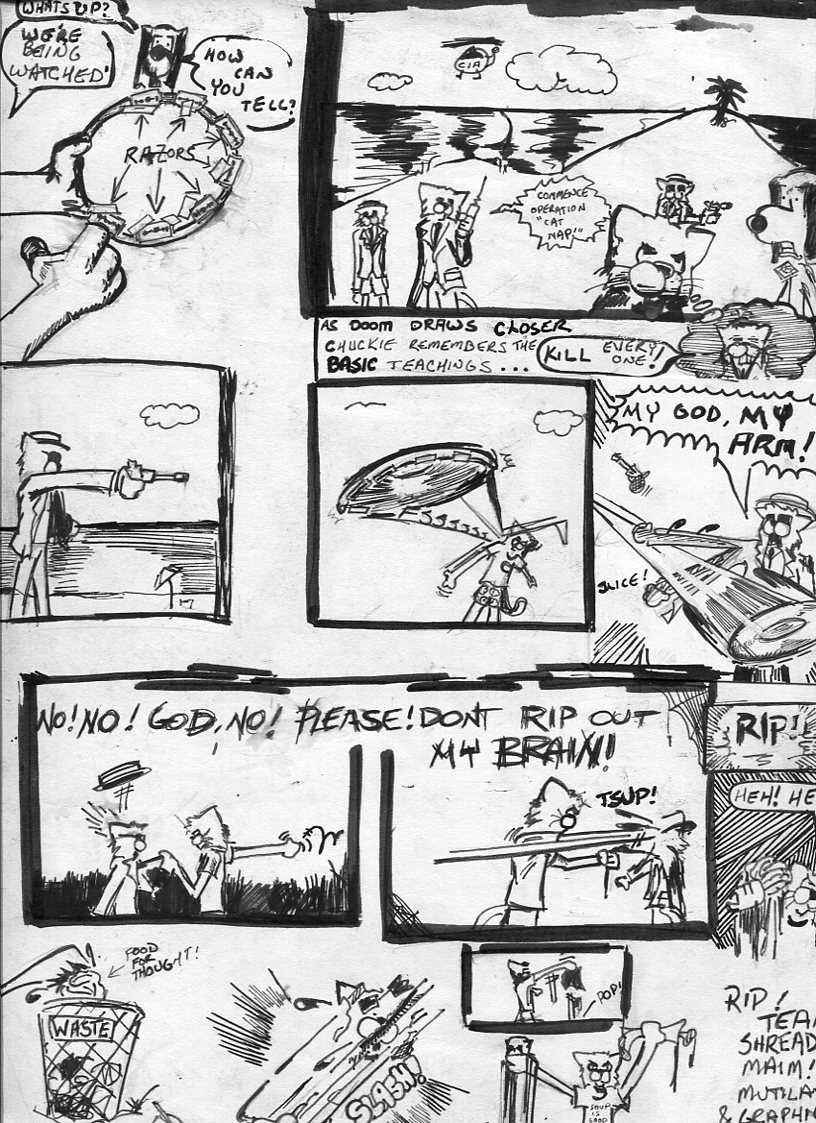 WHATS UP?
WE'RE
BEING
WATCHED!
HOW
CAN
YOU
TELL?
RAZORS
CIA
COMMENCE
OPERATION
"CAT
NAP!"
AS DOOM DRAWS CLOSER
CHUCKIE REMEMBERS THE
BASIC TEACHINGS...
KILL EVERY
ONE!
MY GOD, MY
ARM!
FSSSSSS
SLICE!
NO! NO! GOD, NO! PLEASE! DONT RIP OUT
MY BRAIN!
RIP!
TSUP!
HEH! HE
FOOD
FOR
THOUGHT!
WASTE
SLASH!
POP!
SOUP
IS
GOOD
RIP!
TEA
SHREAD
MAIM!
MUTILA
& GRAPHN